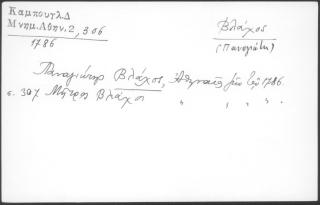 Καμπουγλ.Δ
Μνημ.Αθην.2, 306
1786
Βλάχος
(Παναγιώτης)
Παναγιώτης Βλάχος, Ἀθηναῖος 1786.
σ. 307 Μῆτρος Βλάχος " " " "